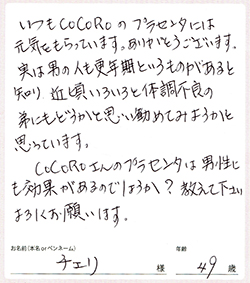 いつもCOCOROのプラセンタには
元気をもらっています。ありがとうございます。
実は男の人も更年期というものがあると
知り、近頃いろいろと体調不良の
弟にもどうかと思い勧めてみようかと
思っています。
COCOROさんのプラセンタは男性に
も効果があるのでしょうか?教えて下さい
よろしくお願いします。
お名前(本名orペンネーム)
年齢
チェリ 様 49 歳